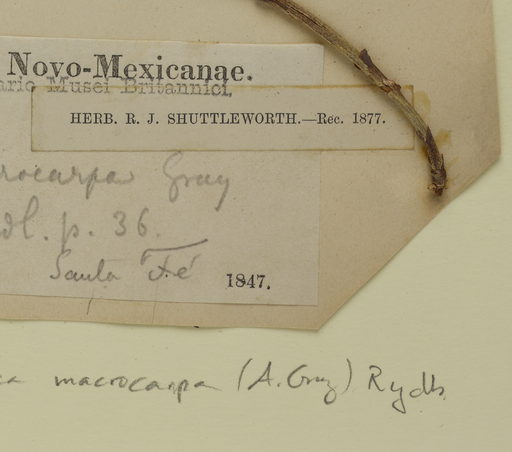 Novo-Mexicanae.
ario Musei Britannici.
HERB. R. J. SHUTTLEWORTH.—Rec. 1877.
rocarpa Gray
dl. p. 36.
Santa Fé 1847.
macrocarpa (A. Gray) Rydb.